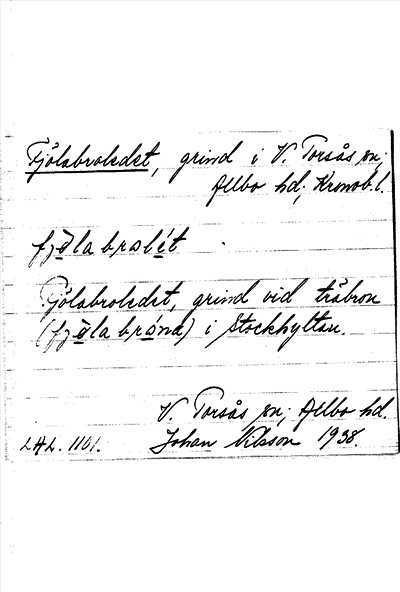 Fjölabroledet, grind i V. Torsås sn;
Allbo hd; Kronob. l.
fjöla brolét
Fjölabroledet, grind vid träbron
(fjöla bróna) i Stockhyltan.
V. Torsås sn; Allbo hd.
LHL. 1101. Johan Nilsson 1938.